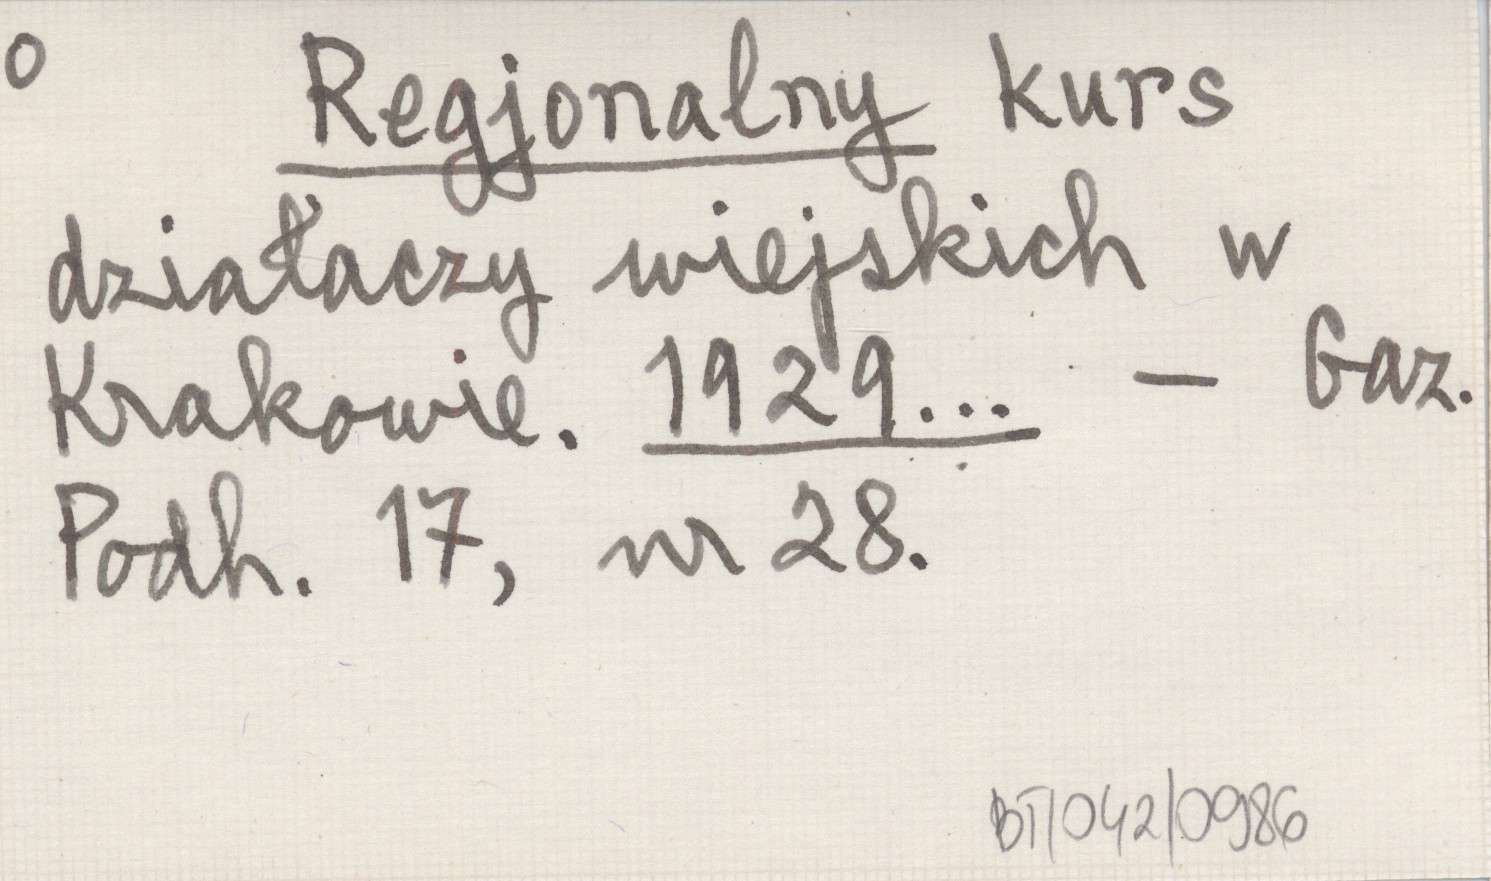 o Regjonalny kurs
działaczy wiejskich w
Krakowie. 1929... — Gaz.
Podh. 17, nr 28.
BT/042/0986